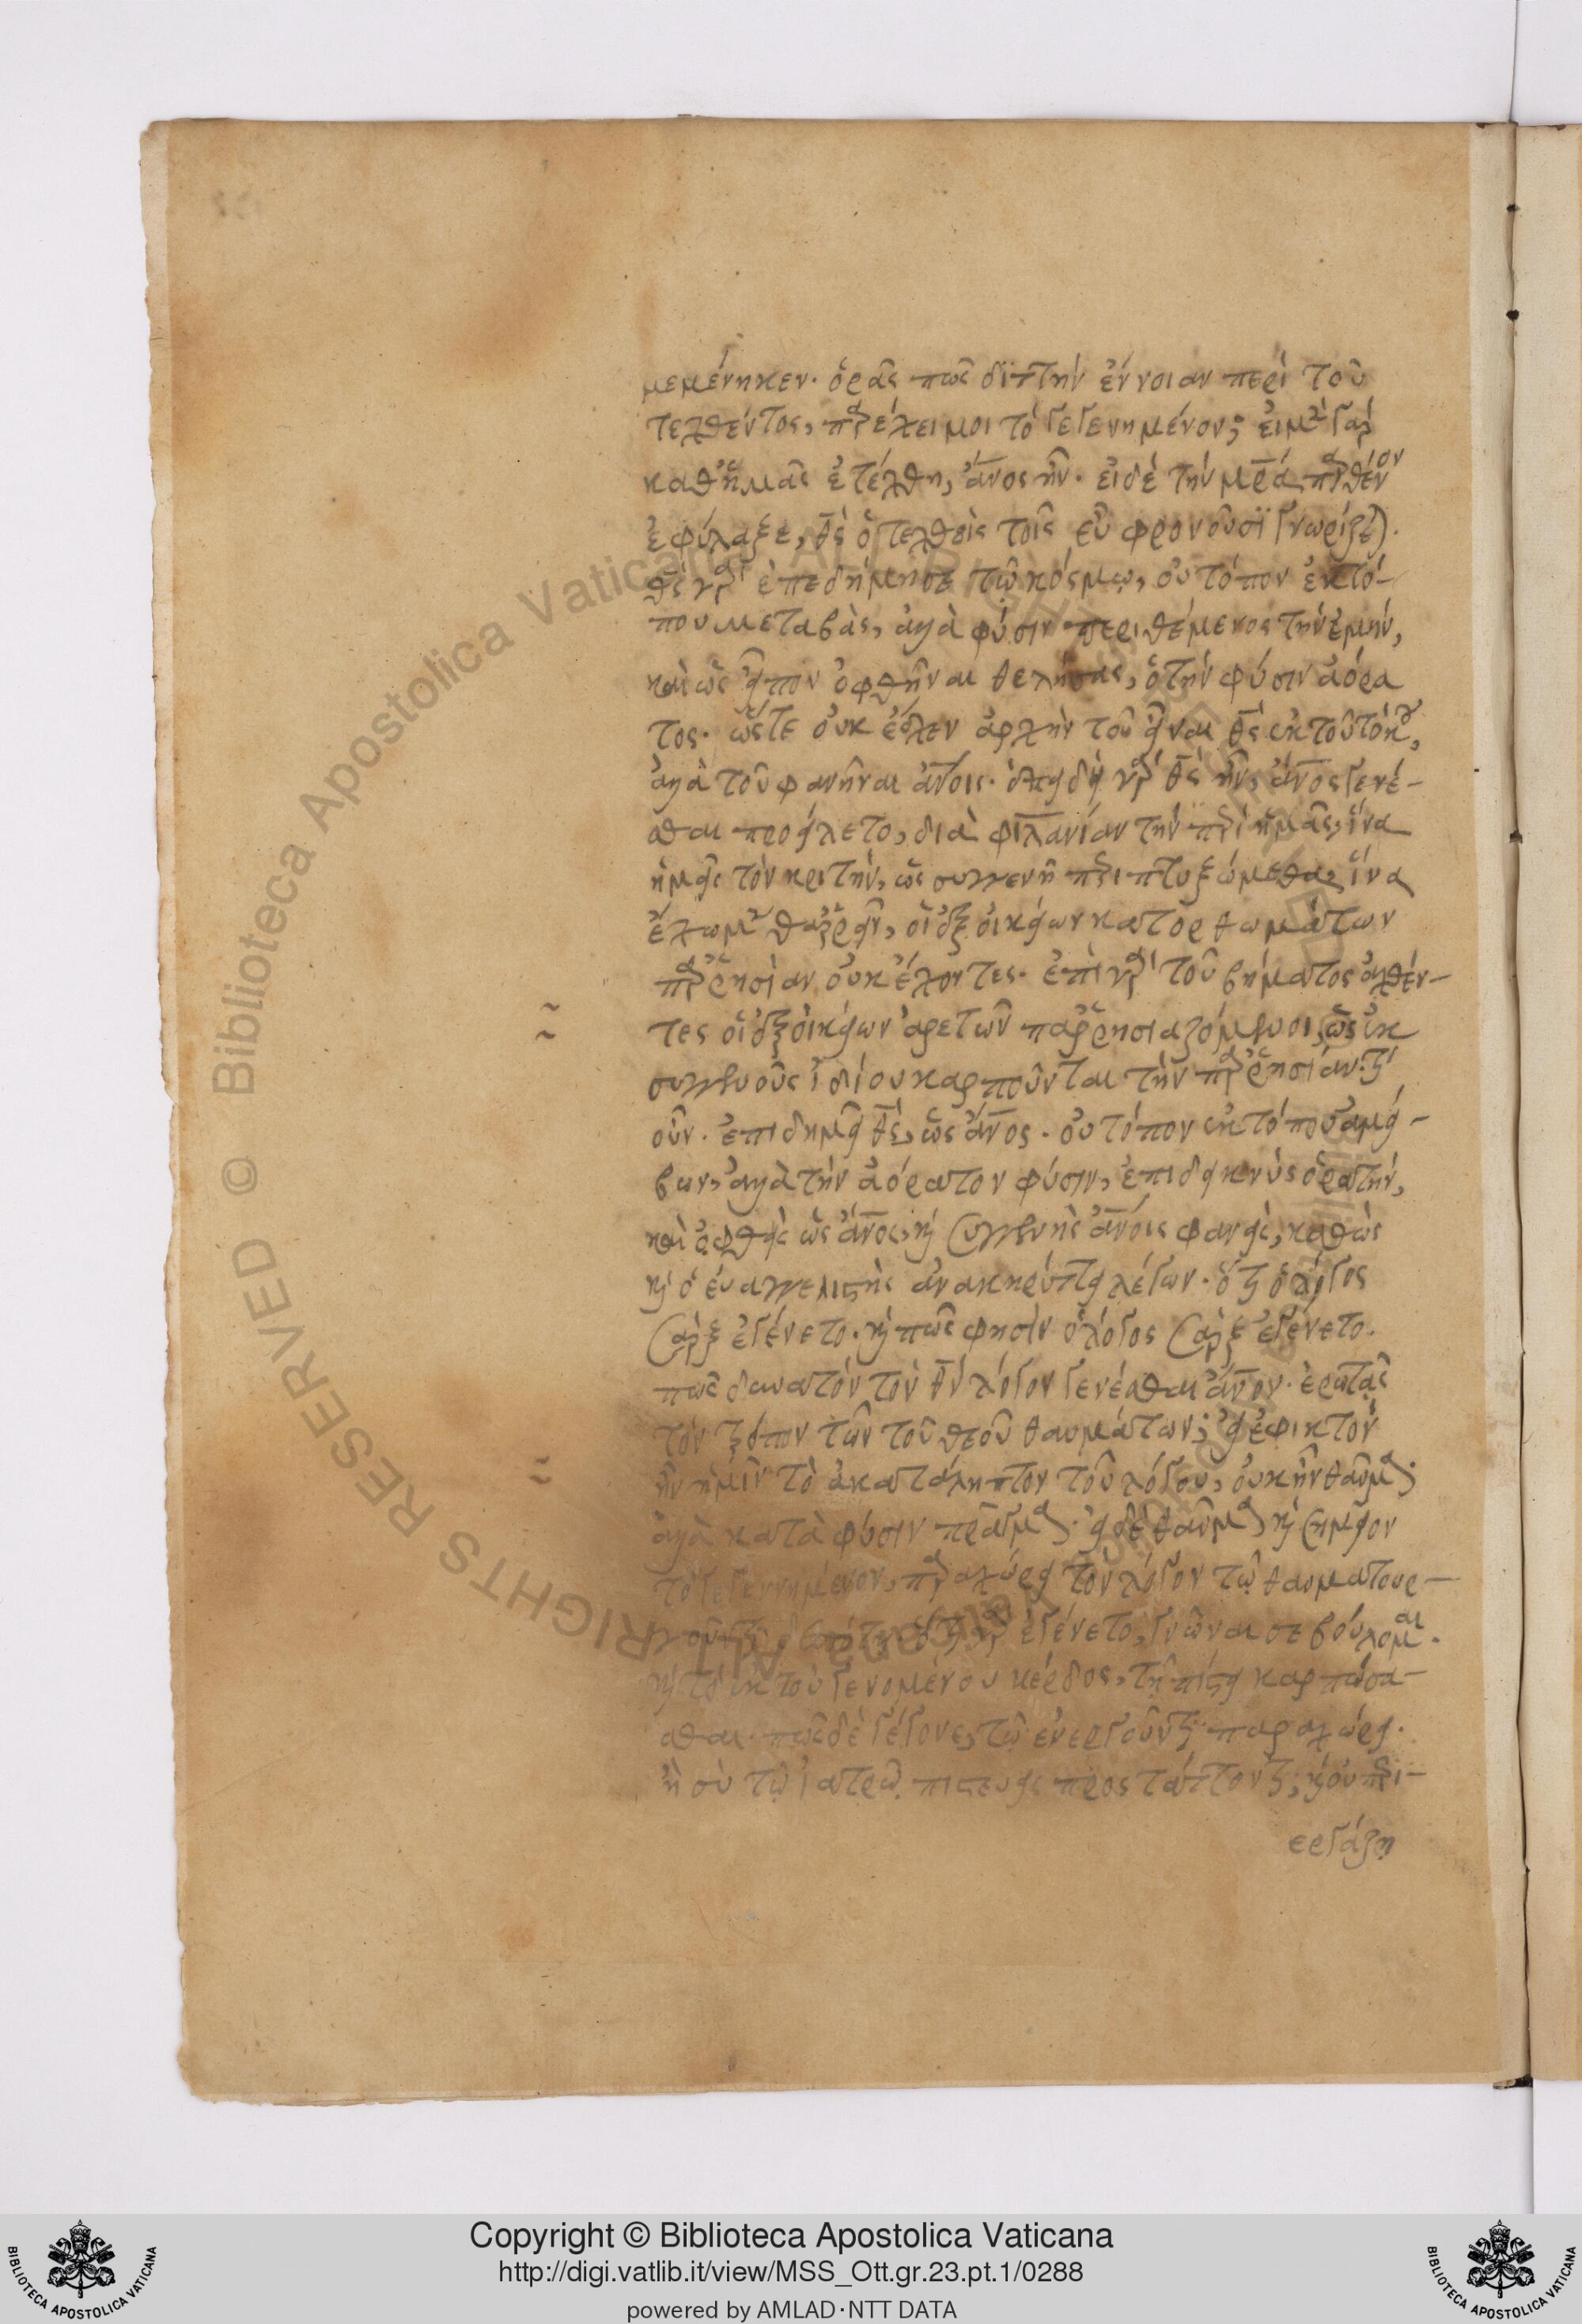 μεμένηκεν. ὁρᾶς πῶς διττὴν ἔννοιαν περὶ τοῦ
τεχθέντος, παρέχει μοι τὸ γεγενημένον; εἰ μὲν γὰρ
καθ' ἡμᾶς ἐτέχθη, ἄνος ἦν. εἰ δὲ τὴν μρ̅α παρθένον
ἐφύλαξε, θς̅ ὁ τεχθεὶς τοῖς εὖ φρονοῦσι γνωρίζεται.
θς̅ γὰρ ἐπεδήμησε τῷ κόσμῳ, οὐ τόπον ἐκ τό-
που μεταβὰς, ἀλλὰ φύσιν περιθέμενος τὴν ἐμὴν,
καὶ ὡς εἶπον ὀφθῆναι θελήσας, ὁ τὴν φύσιν ἀόρα
τος. ὥστε οὐκ ἔσχεν ἀρχὴν τοῦ εἶναι θς̅ ἐκ τοῦ τόκου,
ἀλλὰ τοῦ φανῆναι ἀνοις. ἐπειδὴ γὰρ θς̅ ἦν, ἄνος γενέ-
σθαι προείλετο, διὰ φιλανίαν τὴν περὶ ἡμᾶς, ἵνα
ἡμεῖς τὸν κριτὴν, ὡς συγγενῆ περιπτυξώμεθα, ἵνα
ἔχωμεν θαρρεῖν, οἱ ἐξ οἰκείων κατορθωμάτων
παρρησίαν οὐκ ἔχοντες. ἐπὶ γὰρ τοῦ βήματος ἀχθέν-
τες οἱ ἐξ οἰκείων ἀρετῶν παρρησιαζόμενοι, ὡς ἐκ
συγγενοῦς ἰδίου καρποῦνται τὴν παρρησίαν.
οὖν. ἐπιδημεῖ θς̅, ὡς ἄνος. οὐ τόπον ἐκ τόπου ἀμεί-
βων, ἀλλὰ τὴν ἀόρατον φύσιν, ἐπιδεικνὺς ὁρατὴν,
καὶ ὀφθεὶς ὡς ἄνος, καὶ συγγενὴς ἀνοις φανεὶς, καθὼς
καὶ ὁ εὐαγγελιστὴς ἀνακηρύττει λέγων. ὅτι ὁ λόγος
σὰρξ ἐγένετο. καὶ πῶς φησὶν ὁ λόγος σὰρξ ἐγένετο.
πῶς δυνατὸν τὸν θν̅ λόγον γενέσθαι ἄνον. ἐρωτᾷς
τὸν τρόπον τῶν τοῦ θεοῦ θαυμάτων; εἰ ἐφικτὸν
ἦν ἡμῖν τὸ ἀκατάληπτον τοῦ λόγου, οὐκ ἦν θαῦμα
ἀλλὰ κατὰ φύσιν πρᾶγμα. εἰ δὲ θαῦμα καὶ σημεῖον
τὸ γεγεννημένον, παραχώρει τὸν λόγον τῷ θαυματουρ-
γοῦντι ὅτι γὰρ ἐγένετο, γνῶναι σε βούλομαι.
καὶ τὸ ἐκ τοῦ γενομένου κέρδος, τῇ πίστει καρπώσα-
σθαι. πῶς δὲ γέγονε, τῷ ἐνεργοῦντι παραχώρει.
ἢ σὺ τῷ ἰατρῷ πιστεύεις προστάττοντι, καὶ οὐ περι-
εργάζῃ